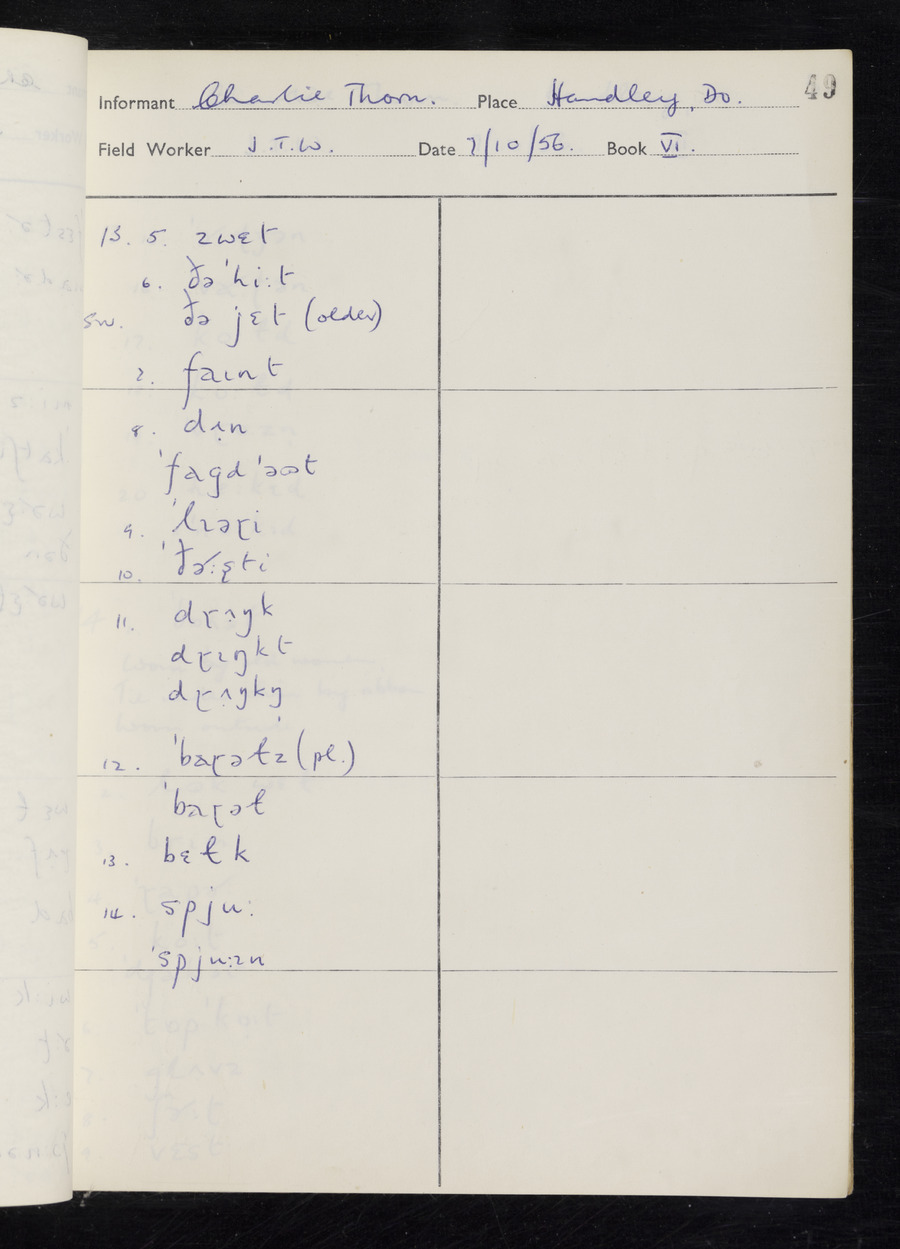 49
Informant Charlie Thorn. Place Handley, Do.
Field Worker J.T.W. Date 7/10/56. Book VI.
13. 5. zwɛt
6. ðə ˈhiːt
s.w. ðə jɛt (older)
7. faɪnt
8. dɪn
ˈfagd ˈəʊt
9. ˈlɪəɽi
10. ˈðəːʂti
11. dɽɪŋk
dɽɪŋkt
dɽɪŋkŋ
12. ˈbaɽəɫz (pl.)
ˈbaɽəɫ
13. bɛɫk
14. spjuː
ˈspjuːɪn